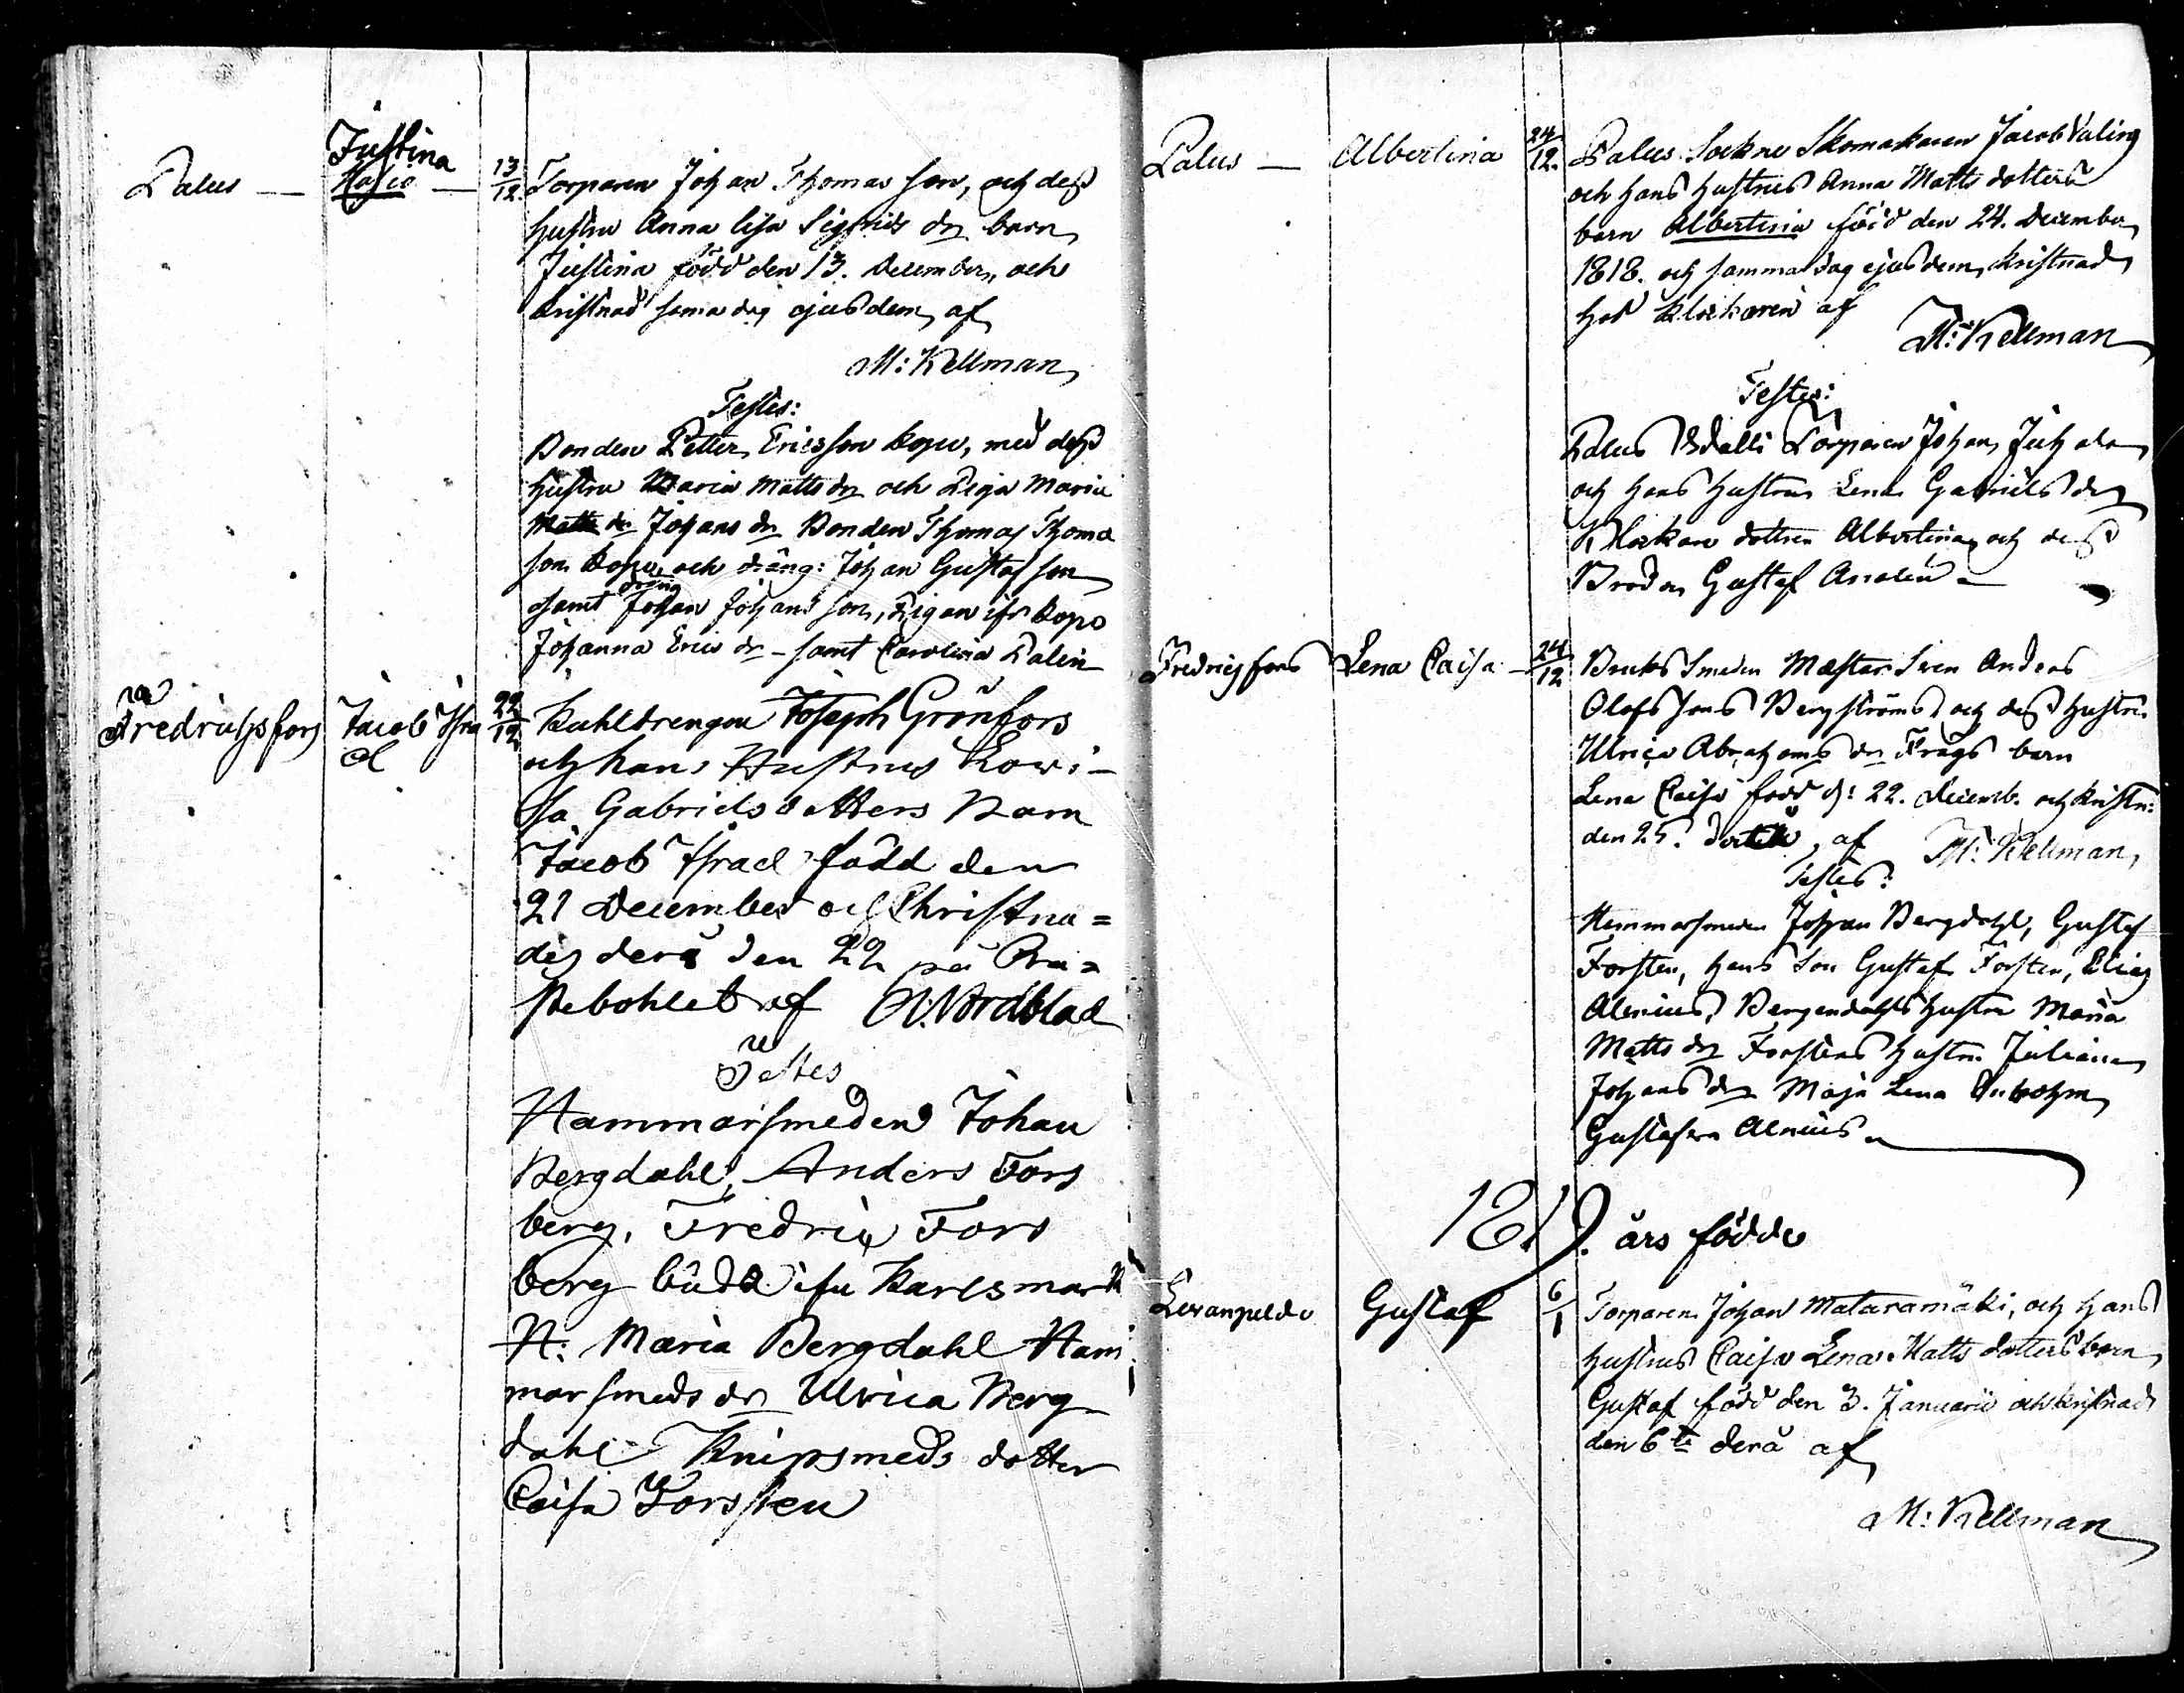 Palus — Justina
Maria — 13/12. Torparen Johan Thomas son, och dess
hustru Anna Lisa Sigfrids dr barn
Justina född den 13. December, och
kristnad sama dag ejusdem, af
M: Kellman
Testes:
Bonden Petter Ericsson Kopo, med dess
hustru Maria Matts dr och Piga Maria
Matts dr Johans dr Bonden Thomas Thoma
son Kopo, och dräng: Johan Gustafson
dräng
samt Johan Johans son, Pigan ifr. Kopo
Johanna Erics dr – samt Carolina Palin
Fredrichsfors Jacob Isra
el 22/12 Kuhldrengen Joseph Grönfors
och hans Hustrus Lowi-
sa Gabrielsdotters Barn
Jacob Israel född den
21 December och Christna=
des derå den 22 på Pra=
stebohlet af N. Nordblad
Testes
Hammarsmeden Johan
Bergdahl, Anders Fors
berg, Fredric Fors
berg båda ifn Karlsmark
H: Maria Bergdahl Ham
marsmeds dr Ulrica Berg
dahl Knipsmeds dotter
Caisa Forsten
Palus — Albertina 24/12. Palus Sockne Skomakaren Jacob Valing
och hans hustrus Anna Matts dotters
barn Albertina född den 24. December
1818. och samma dag ejusdem, kristnad
hos Klockaren af
M: Kellman
Testes:
Palus Torparen Johan Juhala
och hans hustru Lena Gabriels dr
Klockare dottren Albertina och dess
Broder Gustaf Analin –
Fredricsfors Lena Caisa – 24/12 Bruks Smeden Mæstar Sven Anders
Olofs Sons Bergströms och dess hustru
Ulrica Abrahams dr Frags barn
Lena Caisa född d: 22. Decemb. och kristn:
den 25. , af M: Kellman,
Testes:
Hammarsmeden Johan Bergdahl, Gustaf
Forsten, hans Son Gustaf Forsten, Elias
Alenius, Bergendahls hustru Maria
Matts dr Forstens hustru Juliana
Johans dr Maja Lena
Gustafva Alenius
1819. års födde
Levanpeldo Gustaf 6/1 Torparen Johan Mataramäki, och hans
hustrus Caisa Lena Matts dotters barn
Gustaf född den 3. Januarii och kristnad
den 6te derå af
M: Kellman